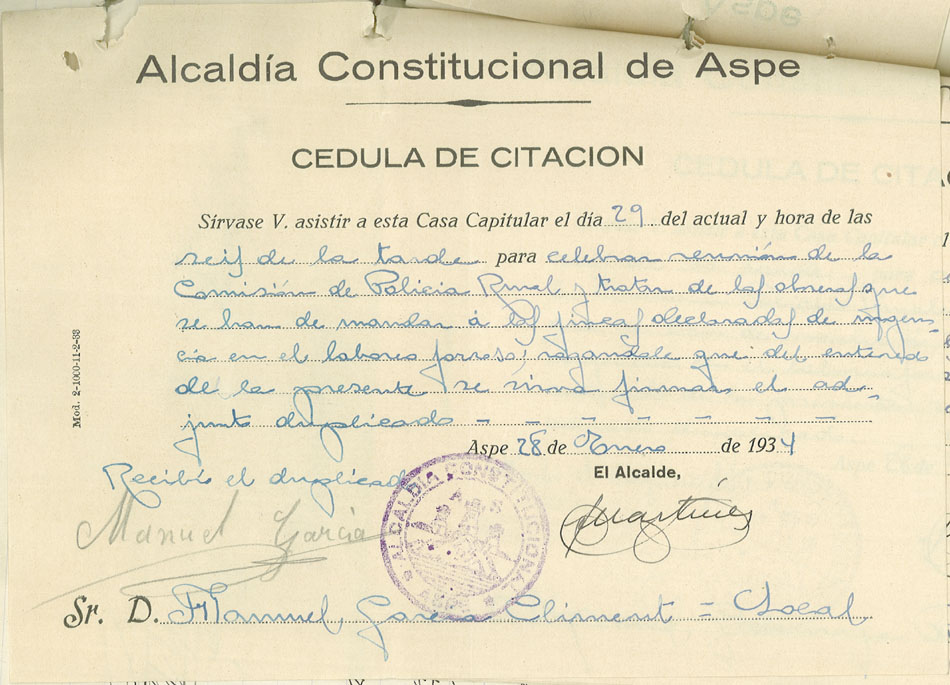 Alcaldía Constitucional de Aspe
CEDULA DE CITACION
Sírvase V. asistir a esta Casa Capitular el día 29 del actual y hora de las
seis de la tarde para celebrar reunión de la
Comisión de Policia Rural y tratar de las obreros que
se han de mandar á las fincas declaradas de urgen-
cia en el laboreo forzoso; rogandole que del enterado
de la presente se sirva firmar el ad-
junto duplicado
Aspe 28 de Enero de 1934
El Alcalde,
Recibí el duplicado
Martínez
Manuel García
ALCALDIA CONSTITUCIONAL
ASPE
Sr. D. Manuel García Climent = Local
Mod. 2-1000-11-2-33
CEDULA DE CITA